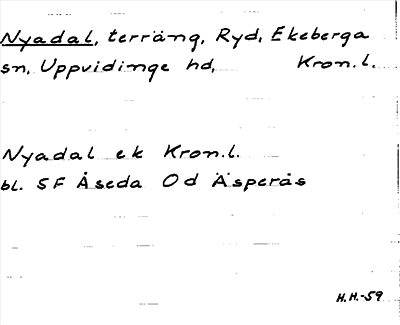 Nyadal, terräng, Ryd, Ekeberga
sn, Uppvidinge hd, Kron.l.
Nyadal ek Kron.l.
bl. 5F Åseda Od Äsperås
H.H.-59